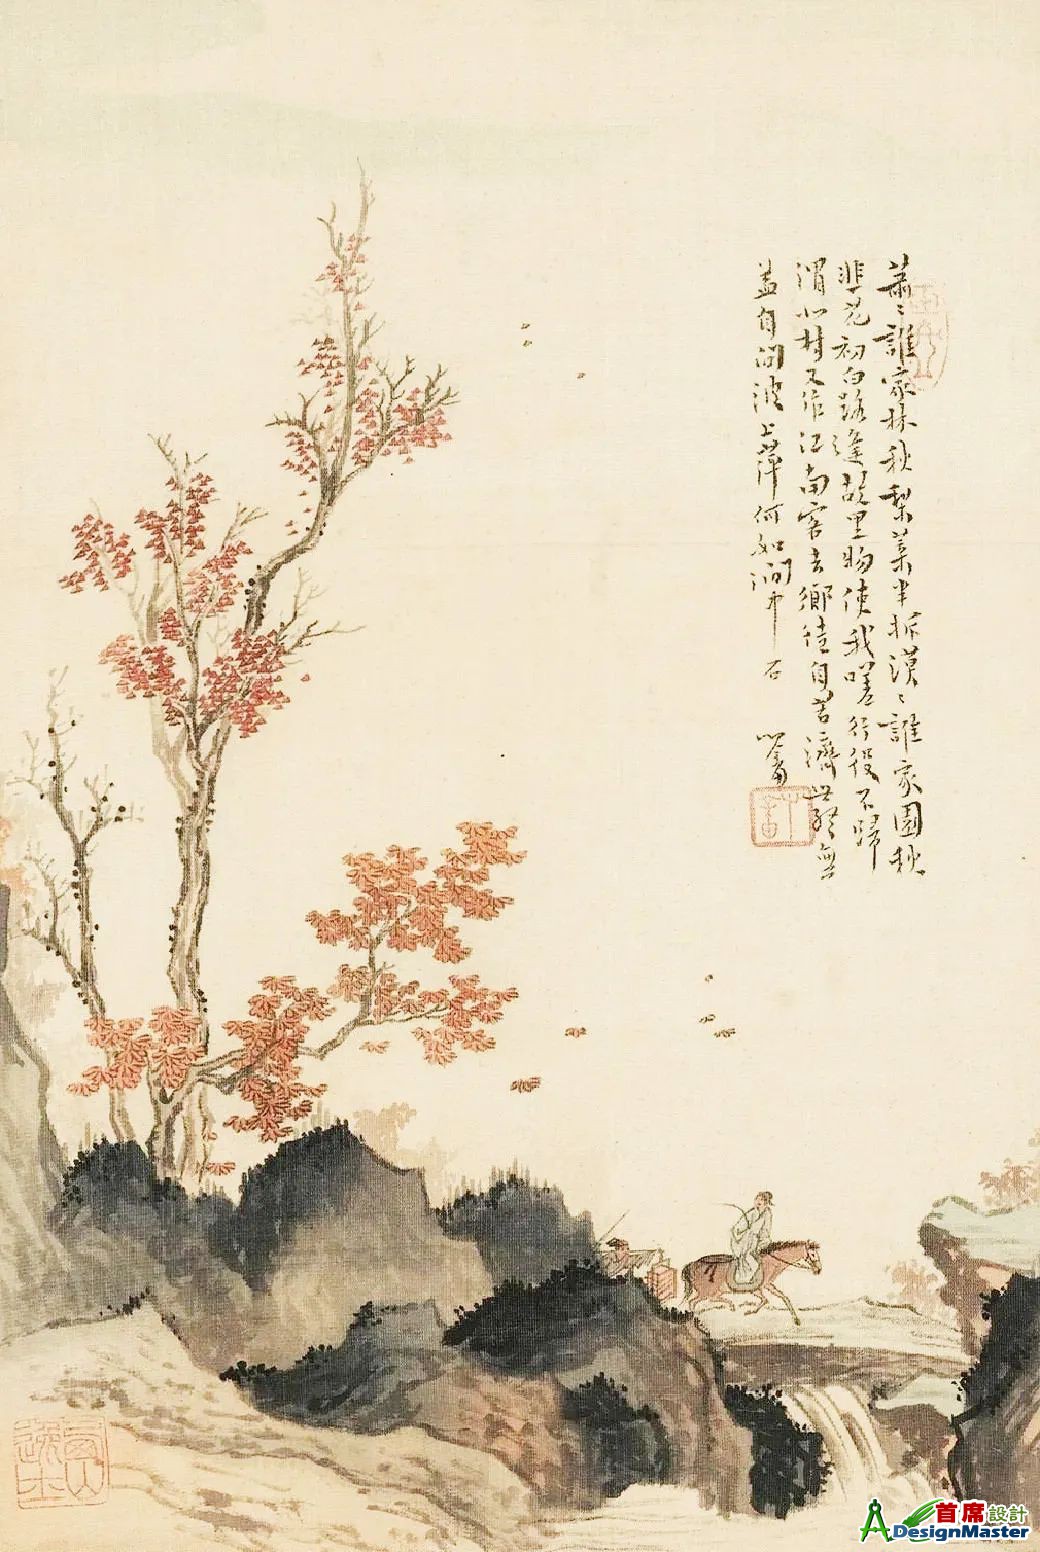 蕭〻誰家林秋梨葉半拆漠〻誰家園秋
韭花初白路逢故里物使我嗟行役不歸
渭北村又作江南客去鄉徒自苦濟世終無
益自問波上萍何如澗中石
心畬
西山逸士
首席設計
ADesignMaster